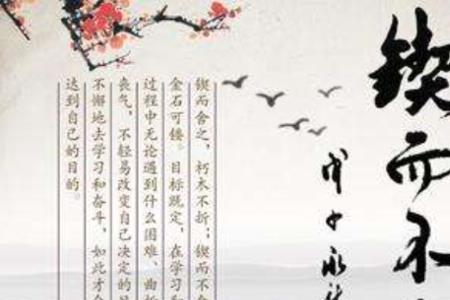 锲而不
戊子永
锲而舍之，朽木不折；锲而不舍
金石可镂。目标既定，在学习和
过程中无论遇到什么困难、曲折
丧气，不轻易改变自己决定的目
不懈地去学习和奋斗，如此才会
达到自己的目的。